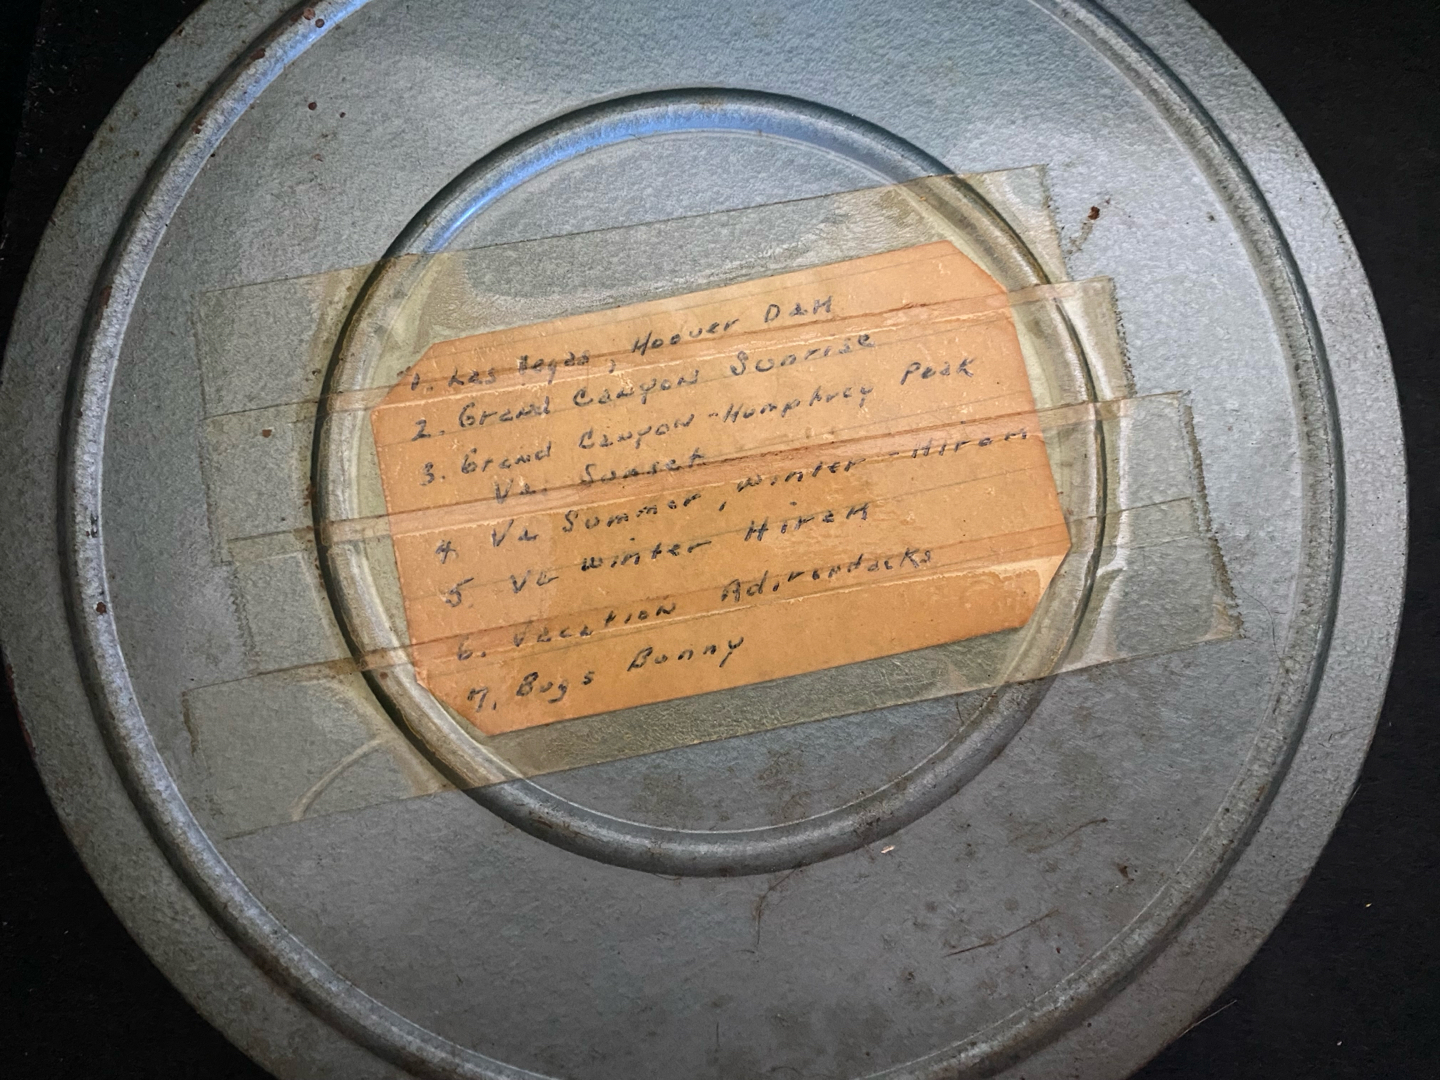 1. Las Vegas, Hoover Dam
2. Grand Canyon Sunrise
3. Grand Canyon - Humphrey Peak
Va. Sunset
4. Va Summer, Winter - Hiram
5. Va Winter Hiram
6. Vacation Adirondacks
7. Bugs Bunny